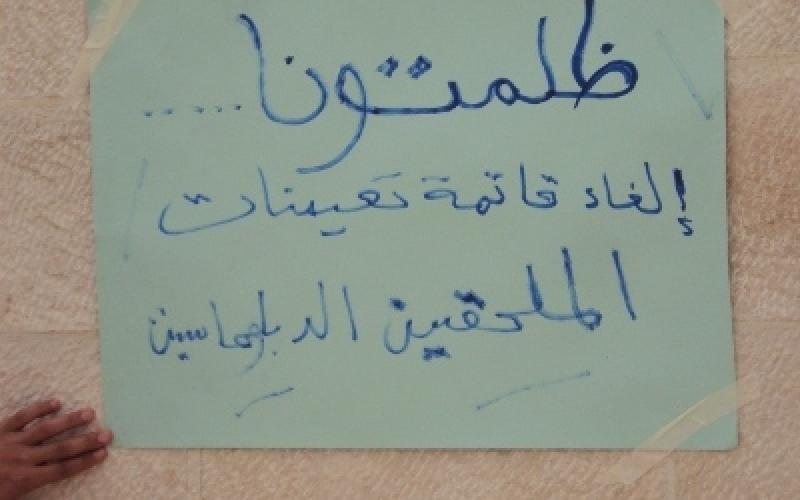 ظلمتونا ......
إلغاء قائمة تعيينات
الملحقين الدبلوماسين